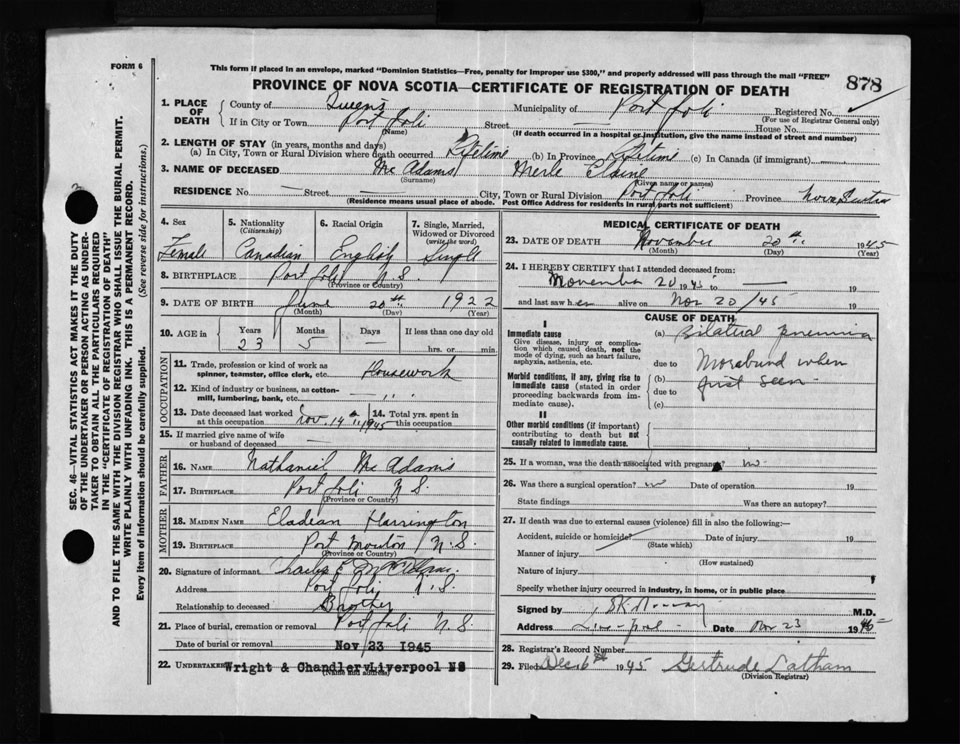 FORM 6
This form if placed in an envelope, marked "Dominion Statistics—Free, penalty for improper use $300," and properly addressed will pass through the mail "FREE"
PROVINCE OF NOVA SCOTIA—CERTIFICATE OF REGISTRATION OF DEATH
878
1. PLACE OF DEATH
County of Queens Municipality of Port Joli Registered No.
(For use of Registrar General only)
If in City or Town Port Joli Street — House No.
(Name) (If death occurred in a hospital or institution, give the name instead of street and number)
2. LENGTH OF STAY (in years, months and days)
(a) In City, Town or Rural Division where death occurred Lifetime (b) In Province Lifetime (c) In Canada (if immigrant)
3. NAME OF DECEASED McAdams Merle Elaine
(Surname) (Given name or names)
RESIDENCE No. — Street — City, Town or Rural Division Port Joli Province Nova Scotia
(Residence means usual place of abode. Post Office Address for residents in rural parts not sufficient)
4. Sex Female
5. Nationality (Citizenship) Canadian
6. Racial Origin English
7. Single, Married, Widowed or Divorced (write the word) Single
8. BIRTHPLACE Port Joli, N.S.
(Province or Country)
9. DATE OF BIRTH June 20th 1922
(Month) (Day) (Year)
10. AGE in Years Months Days If less than one day old
23 5 — hrs. or min.
OCCUPATION
11. Trade, profession or kind of work as spinner, teamster, office clerk, etc. Housework
12. Kind of industry or business, as cotton-mill, lumbering, bank, etc. — " "
13. Date deceased last worked at this occupation Nov. 14th 1945
14. Total yrs. spent in this occupation
15. If married give name of wife or husband of deceased —
FATHER
16. NAME Nathaniel McAdams
17. BIRTHPLACE Port Joli N.S.
(Province or Country)
MOTHER
18. MAIDEN NAME Harrington
19. BIRTHPLACE Port Mouton N.S.
(Province or Country)
20. Signature of informant Charles E. McAdams
Address Port Joli N.S.
Relationship to deceased Brother
21. Place of burial, cremation or removal Port Joli N.S.
Date of burial or removal Nov 23 1945
22. UNDERTAKER Wright & Chandler, Liverpool NS
(Name and address)
MEDICAL CERTIFICATE OF DEATH
23. DATE OF DEATH November 20th 1945
(Month) (Day) (Year)
24. I HEREBY CERTIFY that I attended deceased from:
November 20 1945 to — 19
and last saw her alive on Nov 20/45 19
CAUSE OF DEATH
I
Immediate cause
Give disease, injury or complication which caused death, not the mode of dying, such as heart failure, asphyxia, asthenia, etc.
(a) Bilateral pneumonia
due to Moribund when
Morbid conditions, if any, giving rise to immediate cause (stated in order proceeding backwards from immediate cause).
(b) first seen
due to
(c)
II
Other morbid conditions (if important) contributing to death but not causally related to immediate cause.
25. If a woman, was the death associated with pregnancy? no
26. Was there a surgical operation? no Date of operation 19
State findings Was there an autopsy?
27. If death was due to external causes (violence) fill in also the following:—
Accident, suicide or homicide? Date of injury 19
(State which)
Manner of injury
(How sustained)
Nature of injury
Specify whether injury occurred in industry, in home, or in public place
Signed by M.D.
Address Liverpool Date Nov 23 1945
28. Registrar's Record Number
29. Filed Dec 6th 1945 Gertrude Latham
(Division Registrar)
SEC. 46—VITAL STATISTICS ACT MAKES IT THE DUTY
OF THE UNDERTAKER OR PERSON ACTING AS UNDER-
TAKER TO OBTAIN ALL THE PARTICULARS REQUIRED
IN THE "CERTIFICATE OF REGISTRATION OF DEATH"
AND TO FILE THE SAME WITH THE DIVISION REGISTRAR WHO SHALL ISSUE THE BURIAL PERMIT.
WRITE PLAINLY WITH UNFADING INK. THIS IS A PERMANENT RECORD.
Every item of information should be carefully supplied. (See reverse side for instructions.)